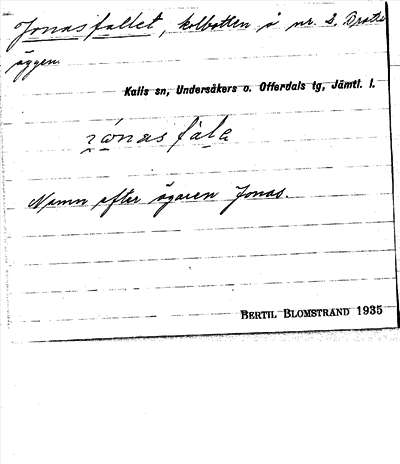 Jonasfallet, kolbotten å nr. 2,
äggen
Kalls sn, Undersåkers o. Offerdals tg, Jämtl. l.
Namn efter ägaren Jonas.
BERTIL BLOMSTRAND 1935